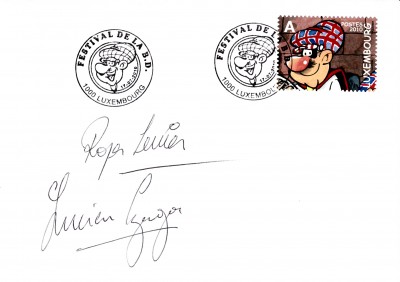 FESTIVAL DE LA B.D.
1000 LUXEMBOURG
FESTIVAL DE LA
1000 LUXEMBOU
A
POSTES
2010
LUXEMBOURG
Roger Leiner
Lucien Czuga